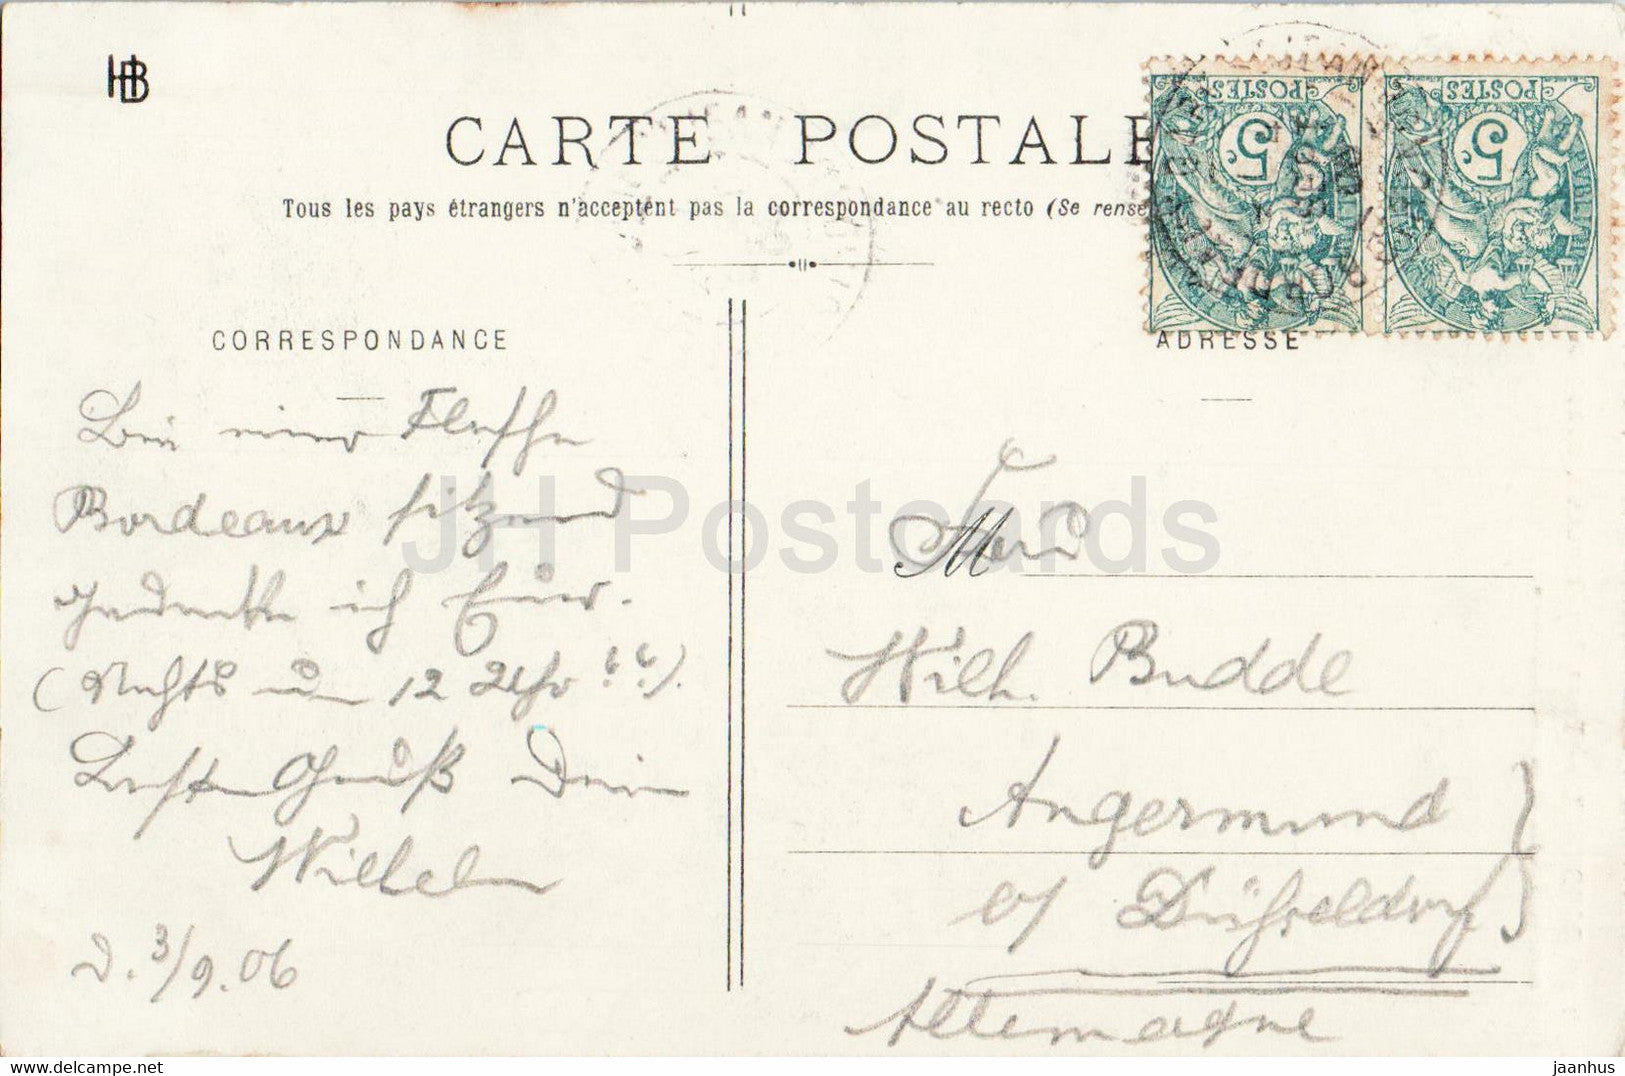 HB
CARTE POSTALE
Tous les pays étrangers n'acceptent pas la correspondance au recto (Se rense
POSTES
5c.
POSTES
5c.
CORRESPONDANCE
ADRESSE
Bei einer Flasche
Bordeaux sitzend
gedenke ich Euer.
(Nachts um 12 Uhr !!).
Besten Gruß Dein
Wilhelm
d. 3/9.06
M
Wilh. Budde
Angermund
b/ Düsseldorf
Allemagne
JH Postcards
hippostcard.com
jaanhus